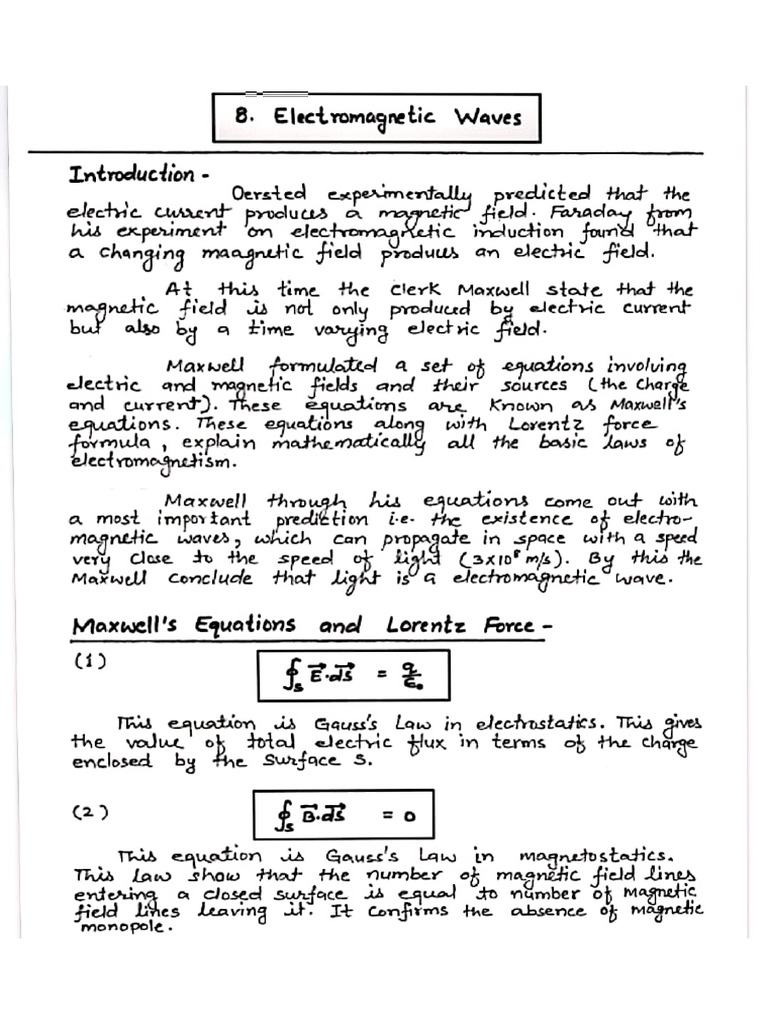 8. Electromagnetic Waves
Introduction -
Oersted experimentally predicted that the
electric current produces a magnetic field. Faraday from
his experiment on electromagnetic induction found that
a changing maagnetic field produces an electric field.
At this time the Clerk Maxwell state that the
magnetic field is not only produced by electric current
but also by a time varying electric field.
Maxwell formulated a set of equations involving
electric and magnetic fields and their sources (the charge
and current). These equations are known as Maxwell's
equations. These equations along with Lorentz force
formula, explain mathematically all the basic laws of
electromagnetism.
Maxwell through his equations come out with
a most important prediction i.e. the existence of electro-
magnetic waves, which can propagate in space with a speed
very close to the speed of light (3x10⁸ m/s). By this the
Maxwell conclude that light is a electromagnetic wave.
Maxwell's Equations and Lorentz Force -
(1) ∮ₛ E⃗.dS⃗ = q/ε₀
This equation is Gauss's Law in electrostatics. This gives
the value of total electric flux in terms of the charge
enclosed by the surface S.
(2) ∮ₛ B⃗.dS⃗ = 0
This equation is Gauss's Law in magnetostatics.
This law show that the number of magnetic field lines
entering a closed surface is equal to number of magnetic
field lines leaving it. It confirms the absence of magnetic
monopole.